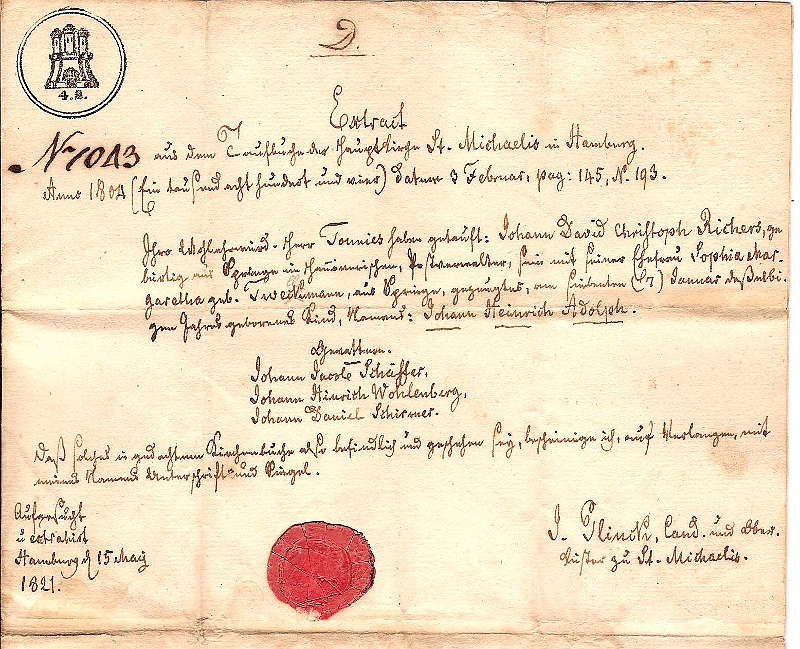 4. S.
D.
Extract
No 1043 aus dem Taufbuche der Hauptkirche St. Michaelis in Hamburg.
Anno 1804 (Ein tausend acht hundert und vier) datum 3 Februar, pag: 145, N. 193.
Ihro Wohlehrwürd. Herr Tonnies haben getauft: Johann David Christoph Richers, ge
bürtig aus Springe im Hannoverischen, Postverwalter, sein mit seiner Ehefrau Sophia Mar-
garetha geb. Tweckmann, aus Springe, gezeugtes, am siebenten (7) Januar desselbi-
gen Jahres geborenes Kind, Namens: Johann Heinrich Adolph.
Gevattern.
Johann Jacob Schäffer.
Johann Hinrich Wohlenberg.
Johann Daniel Schirmer.
Daß solches in gedachtem Kirchenbuche also befindlich und geschehen sey, bescheinige ich, auf Verlangen, mit
meines Namens Unterschrift und Siegel.
Aufgesucht
u extrahirt
Hamburg d 15 May
1821.
J. Flinck, Cand. und Ober-
Küster zu St. Michaelis.